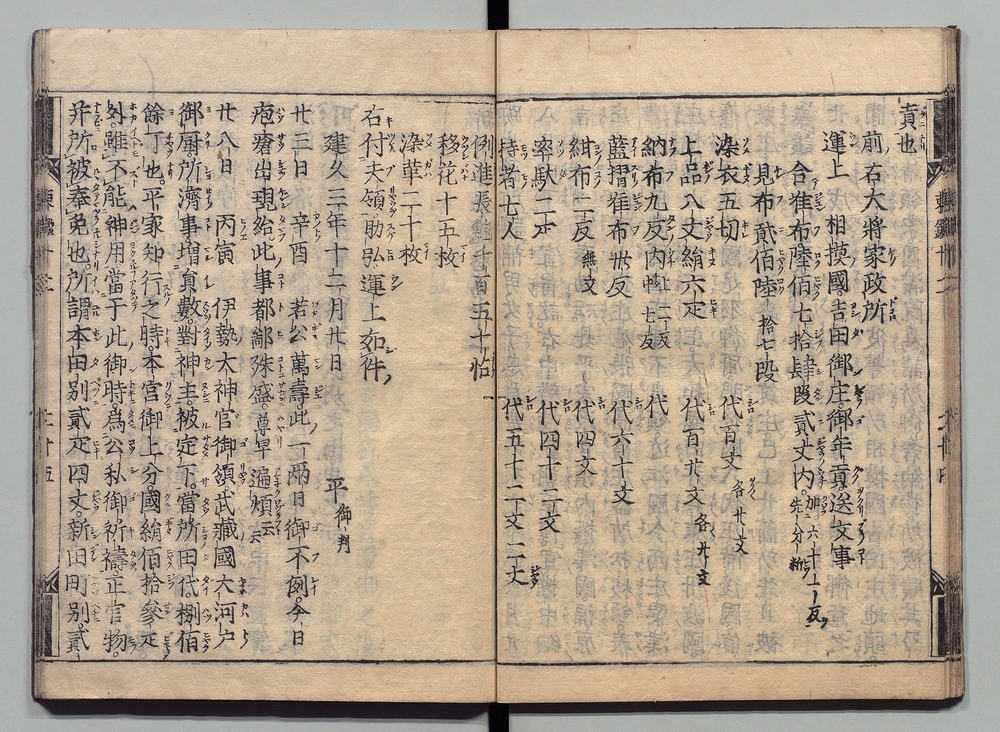 責也
前右大將家政所
運上 相摸國吉田御庄御年貢送文事
合准布陸佰七拾肆段貳丈内
見布貳佰陸拾七段
染衣五切 代百文 各廿文
上品八丈絹六疋 代百廿文 各廿文
納布九反内 上二反 七反 代
藍摺准布卅反 代六十文
紺布二反 無文 代四文
率駄二疋 代四十二文
持者七人 代五十二文二丈
例進長 百五十帖
移花十五枚
染革二十枚
右付夫領助弘運上如件
建久三年十二月廿日 平 御判
廿三日 辛酉 若公萬壽此一兩日御不例今日
疱瘡出現給此事都鄙殊盛尊卑遍煩云云
廿八日 丙寅 伊勢大神宮御領武藏國大河戸
御厨所濟事増員數對神主被定下當所田代捌佰
餘丁也平家知行之時本宮御上分國絹佰拾參疋
外雖不能神用當于此御時爲公私御祈禱正官物
幷所被奉免也所謂本田別貳疋四丈新田町別貳